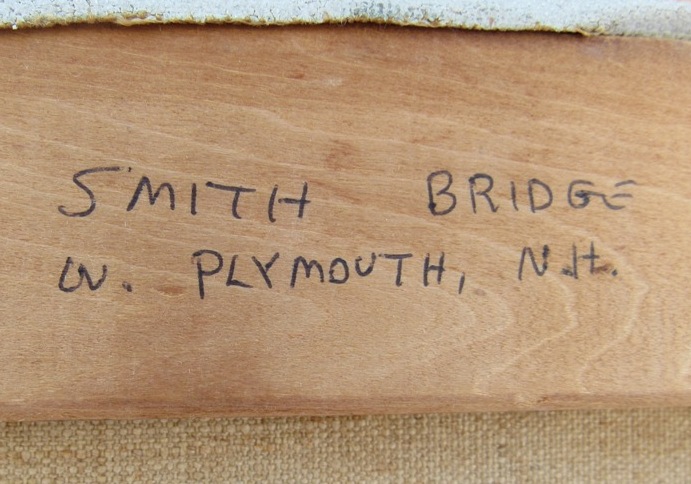 SMITH BRIDGE
W. PLYMOUTH, N.H.